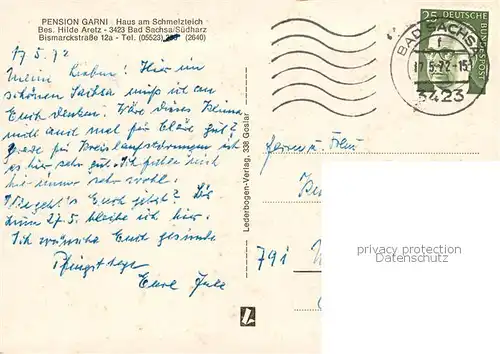 PENSION GARNI Haus am Schmelzteich
Bes. Hilde Aretz - 3423 Bad Sachsa/Südharz
Bismarckstraße 12a - Tel. (05523) (2640)
17.5.72
Meine Lieben! Hier im
schönen Sachsa muß ich an
Euch denken. Wäre dieses Klima
nicht auch mal für Cläre gut?
Grade für Kreislaufstörungen ist
es hier sehr gut. Ich fühle mich
hier immer sehr wohl.
Wie geht's Euch jetzt? Bis
zum 27.5. bleibe ich hier.
Ich wünsche Euch gesunde
Pfingsttage
Eure
Lederbogen-Verlag, 338 Goslar
25 DEUTSCHE BUNDESPOST
BAD SACHSA
f
17.5.72-15
3423
Herrn u. Frau
791
privacy protection
Datenschutz